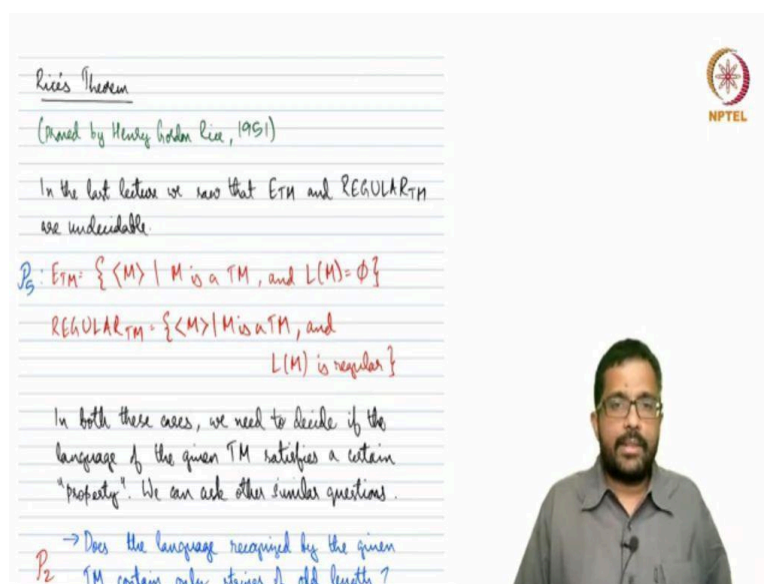 Rice's Theorem
NPTEL
(proved by Henry Gordon Rice, 1951)
In the last lecture we saw that E_TM and REGULAR_TM
are undecidable.
P5: E_TM = {<M> | M is a TM, and L(M) = ϕ}
REGULAR_TM = {<M> | M is a TM, and
L(M) is regular}
In both these cases, we need to decide if the
language of the given TM satisfies a certain
"property". We can ask other similar questions.
→ Does the language recognized by the given
P2 TM contain only strings of odd length?